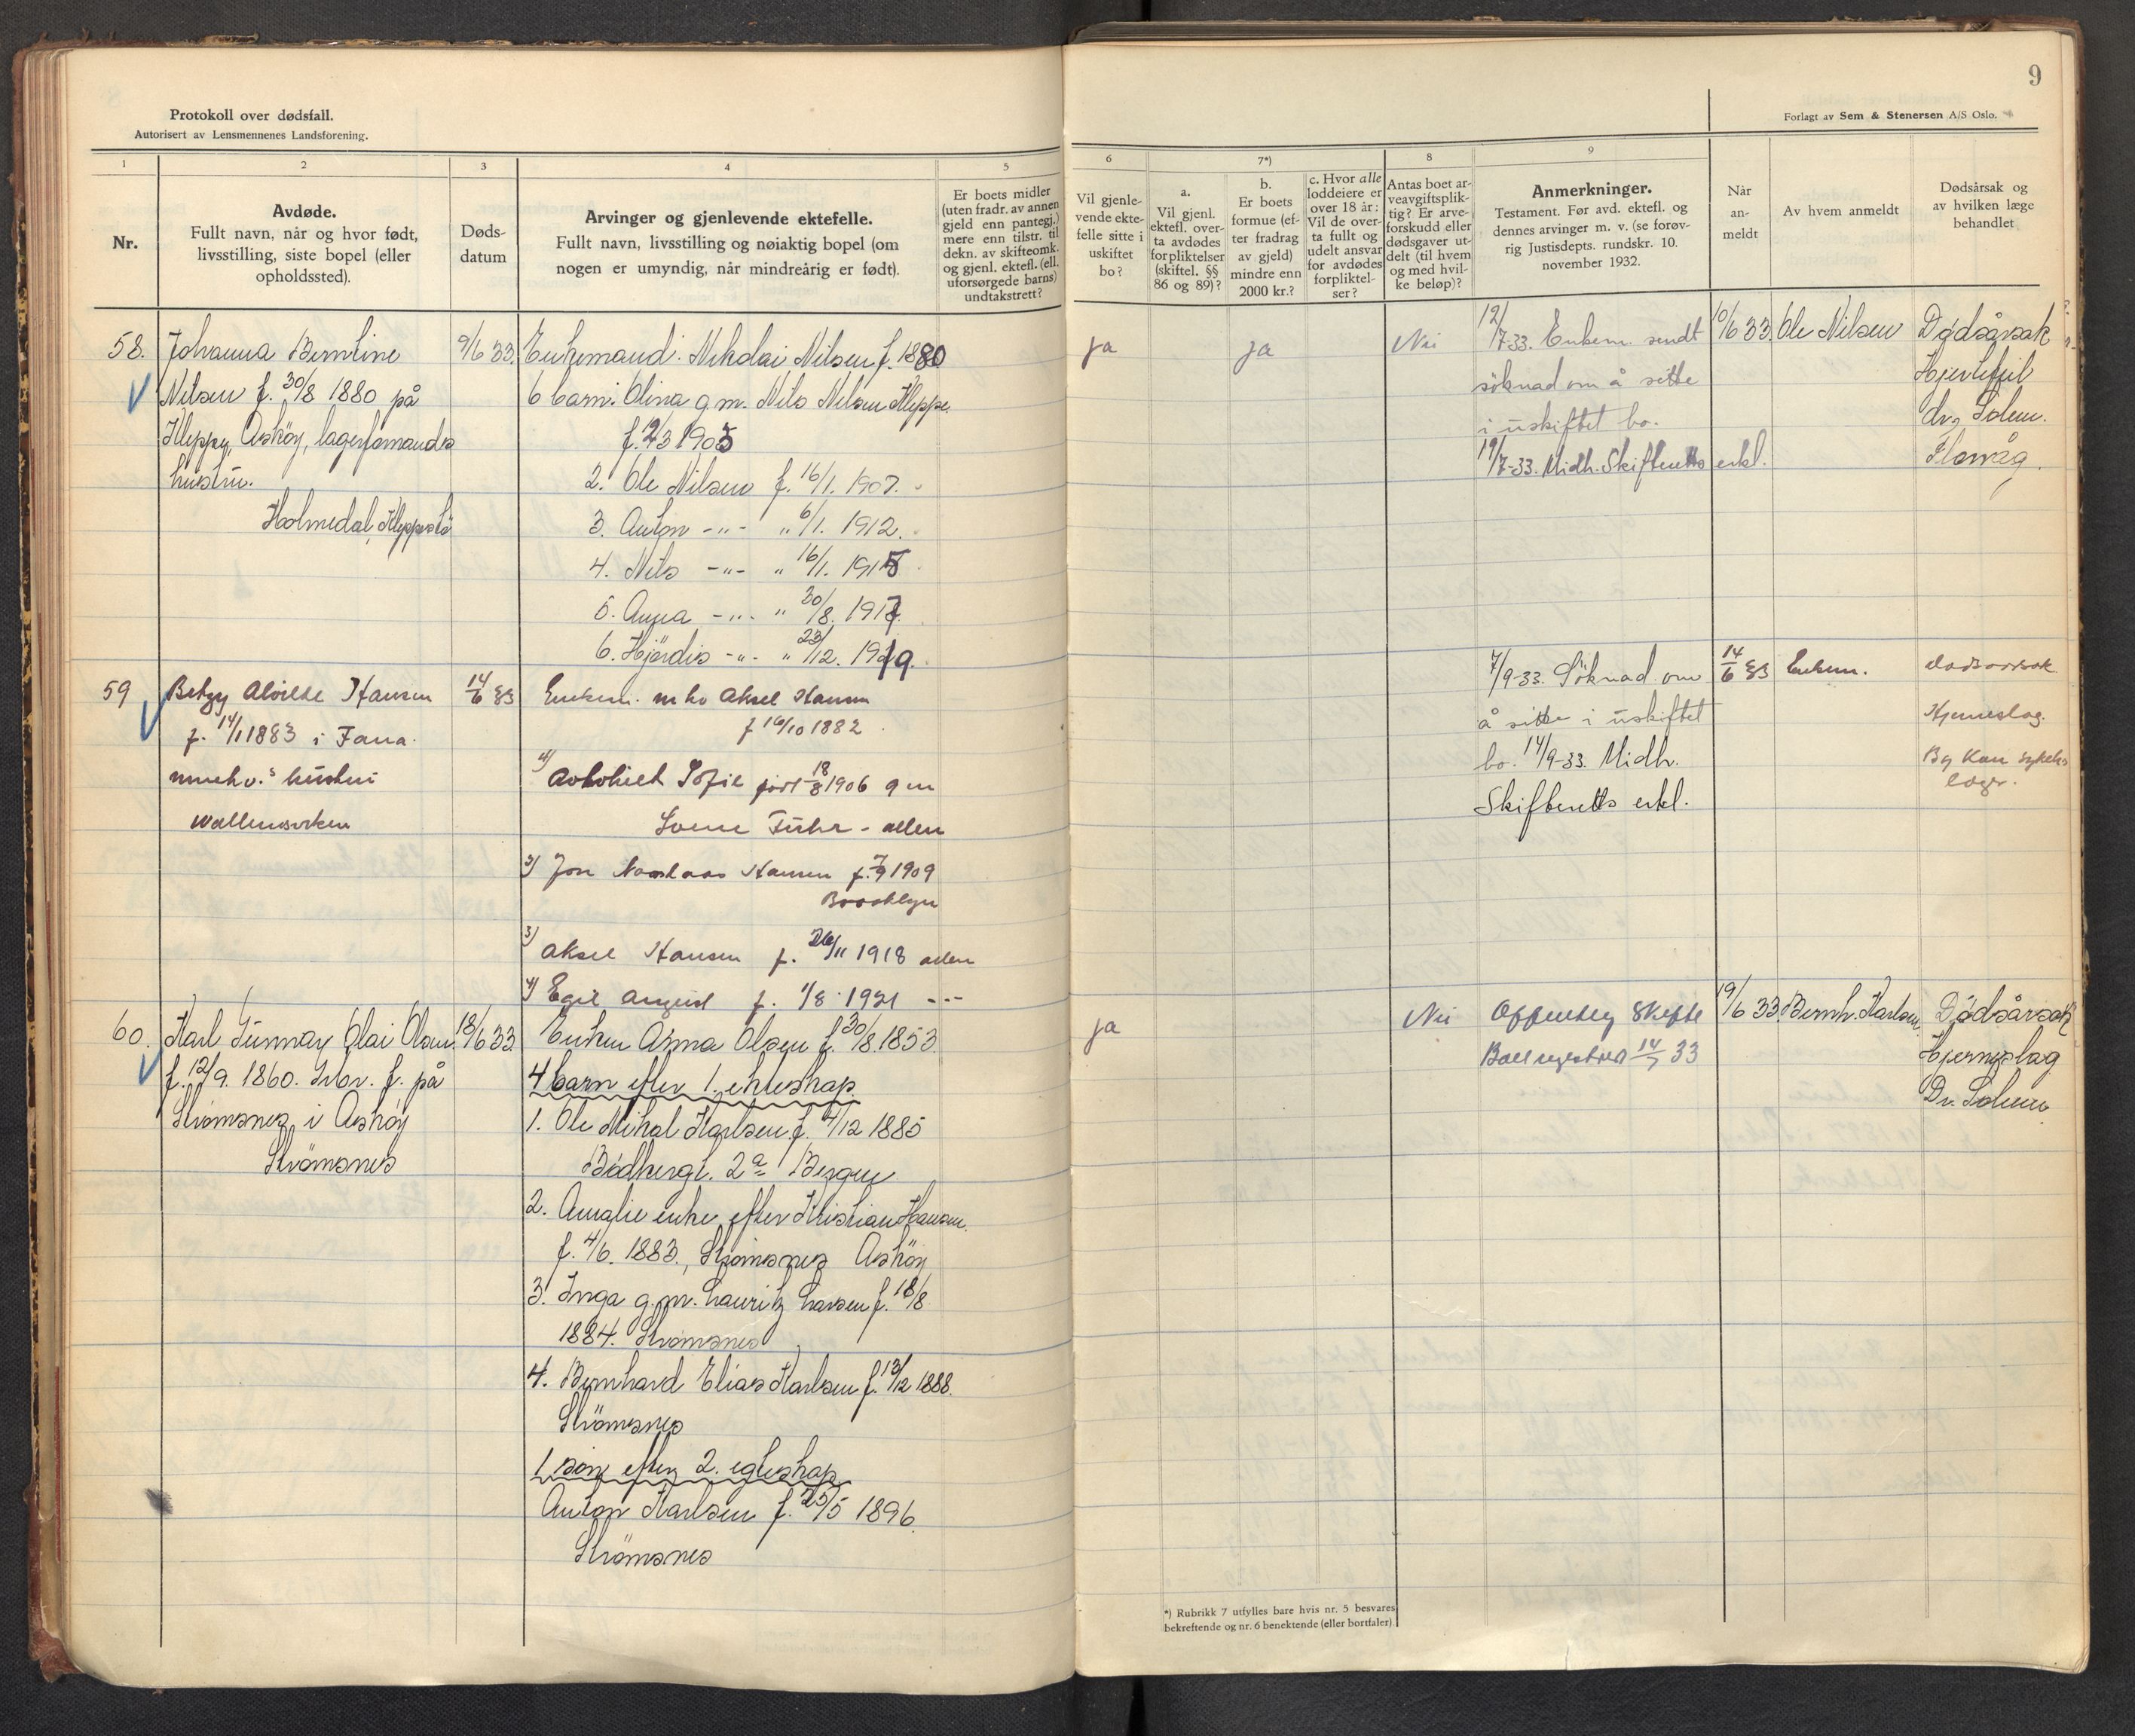 Protokoll over dødsfall.
Autorisert av Lensmennenes Landsforening.
1
2
3
4
5
Nr.
Avdøde.
Fullt navn, når og hvor født,
livsstilling, siste bopel (eller
opholdssted).
Døds-
datum
Arvinger og gjenlevende ektefelle.
Fullt navn, livsstilling og nøiaktig bopel (om
nogen er umyndig, når mindreårig er født).
Er boets midler
(uten fradr. av annen
gjeld enn pantegj.)
mere enn tilstr. til
dekn. av skifteomk.
og gjenl. ektefl. (ell.
uforsørgede barns)
undtakstrett?
58.
Johanna Berntine
Nilsen f. 30/8 1880 på
Kleppe, Askøy, lagerformands
hustru.
Holmedal, Kleppestö
9/6 33.
Enkemand: Nikolai Nilsen f. 1880
6 barn: Olina g.m. Nils Nilsen Kleppe.
f. 2/3 1905
2. Ole Nilsen f. 16/1. 1907.
3. Anton -"- " 6/1. 1912.
4. Nils -"- " 16/1. 1915
5. Anna -"- " 30/8. 1917
6. Hjördis -"- " 23/12. 1919.
59
Betzy Hansen
f. 14/1 1883 i Fana.
hustru
14/6 33
Enkem. Aksel Hansen
f 16/10 1882.
1) Sofie født 18/8 1906 g m
2) Jon Hansen f. 7/9 1909
Brooklyn
3) Aksel Hansen f. 26/11 1918
4) Egil August f. 1/8 1921 ---
60.
Karl Gunnar Olai Olsen
f. 12/9. 1860. f. på
Strömsnes i Askøy
Strömsnes
18/6 33.
Enken Anna Olsen f. 30/8. 1853.
4 barn efter 1. ekteskap.
1. Ole Mikal Karlsen f. 4/12 1885
2a Bergen
2. Amalie enke efter Kristian Hansen.
f. 4/6. 1883., Strömsnes Askøy
3. Inga g.m. Lauritz Larsen f. 18/8
1884. Strömsnes
4. Bernhard Elias Karlsen f. 13/12 1888.
Strömsnes
1 sön efter 2. egteskap
Anton Karlsen f. 25/5 1896.
Strömsnes
9
Forlagt av Sem & Stenersen A/S Oslo.
6
7*)
8
9
Vil gjenle-
vende ekte-
felle sitte i
uskiftet
bo?
a.
Vil gjenl.
ektefl. over-
ta avdødes
forpliktelser
(skiftel. §§
86 og 89)?
b.
Er boets
formue (ef-
ter fradrag
av gjeld)
mindre enn
2000 kr.?
c. Hvor alle
loddeiere er
over 18 år:
Vil de over-
ta fullt og
udelt ansvar
for avdødes
forpliktel-
ser?
Antas boet ar-
veavgiftsplik-
tig? Er arve-
forskudd eller
dødsgaver ut-
delt (til hvem
og med hvil-
ke beløp)?
Anmerkninger.
Testament. Før avd. ektefl. og
dennes arvinger m. v. (se forøv-
rig Justisdepts. rundskr. 10.
november 1932.
Når
an-
meldt
Av hvem anmeldt
Dødsårsak og
av hvilken læge
behandlet
ja
ja
Nei
12/7-33. Enkem. sendt
söknad om å sitte
i uskiftet bo.
19/7-33. Midh. Skifteretts erkl.
10/6 33.
Ole Nilsen
Dødsårsak
Hjertefeil
dr. Solem.
Florvåg.
7/9-33. Söknad om
å sitte i uskiftet
bo. 14/9-33. Midh.
Skifteretts erkl.
14/6 33
Enkem.
Hjerneslag.
ja
Nei
Offentleg Skifte
14/7 33
19/6 33.
Bernh. Karlsen
Dödsårsak
Hjerneslag
Dr. Solem
*) Rubrikk 7 utfylles bare hvis nr. 5 besvares
bekreftende og nr. 6 benektende (eller bortfaler).